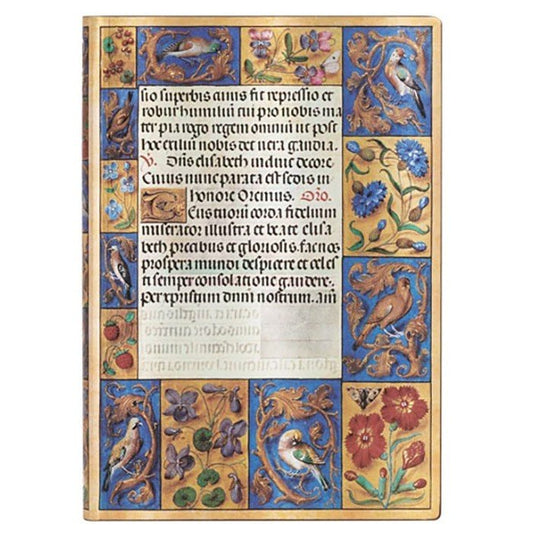 sio superbis cuius fit repressio et
robur humilium cui pro nobis ma
ter pia rogo regem omnium ut post
hoc exilium nobis det vera gaudia.
V. Dns elisabeth induit decore
Cuius nunc parata est sedis in
honore Oremus. Oro.
Tuorum corda fidelium
miserator illustra et beate elisa
beth precibus et gloriosis. fac nos
prospera mundi despicere et celes
ti semper consolatione gaudere.
per xpristum dnm nostrum. am